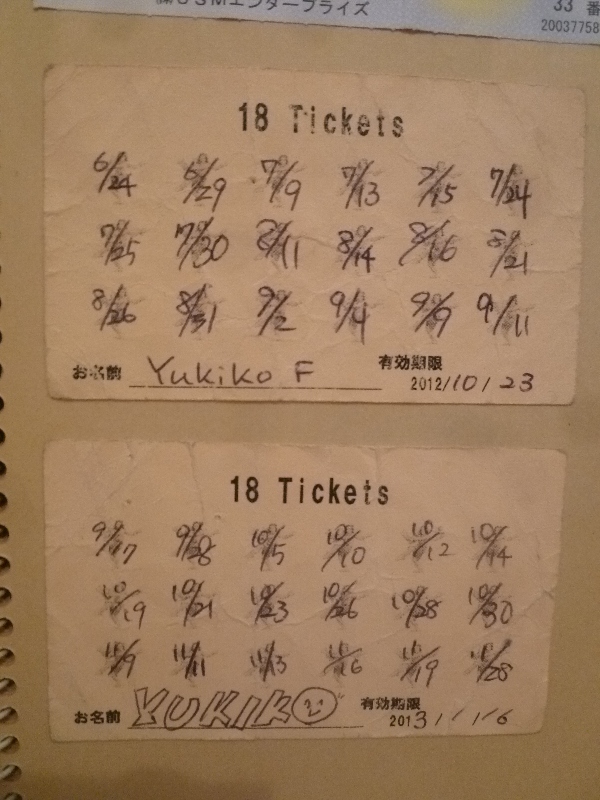 ㈱USMエンタープライズ
33 番
20037758
18 Tickets
6/24 6/29 7/9 7/13 7/15 7/24
7/25 7/30 8/11 8/14 8/16 8/21
8/26 8/31 9/2 9/4 9/9 9/11
お名前 Yukiko F 有効期限 2012/10/23
18 Tickets
9/17 9/28 10/5 10/10 10/12 10/14
10/19 10/21 10/23 10/26 10/28 10/30
11/9 11/11 11/13 11/16 11/19 11/28
お名前 YUKIKO 有効期限 2013/1/16